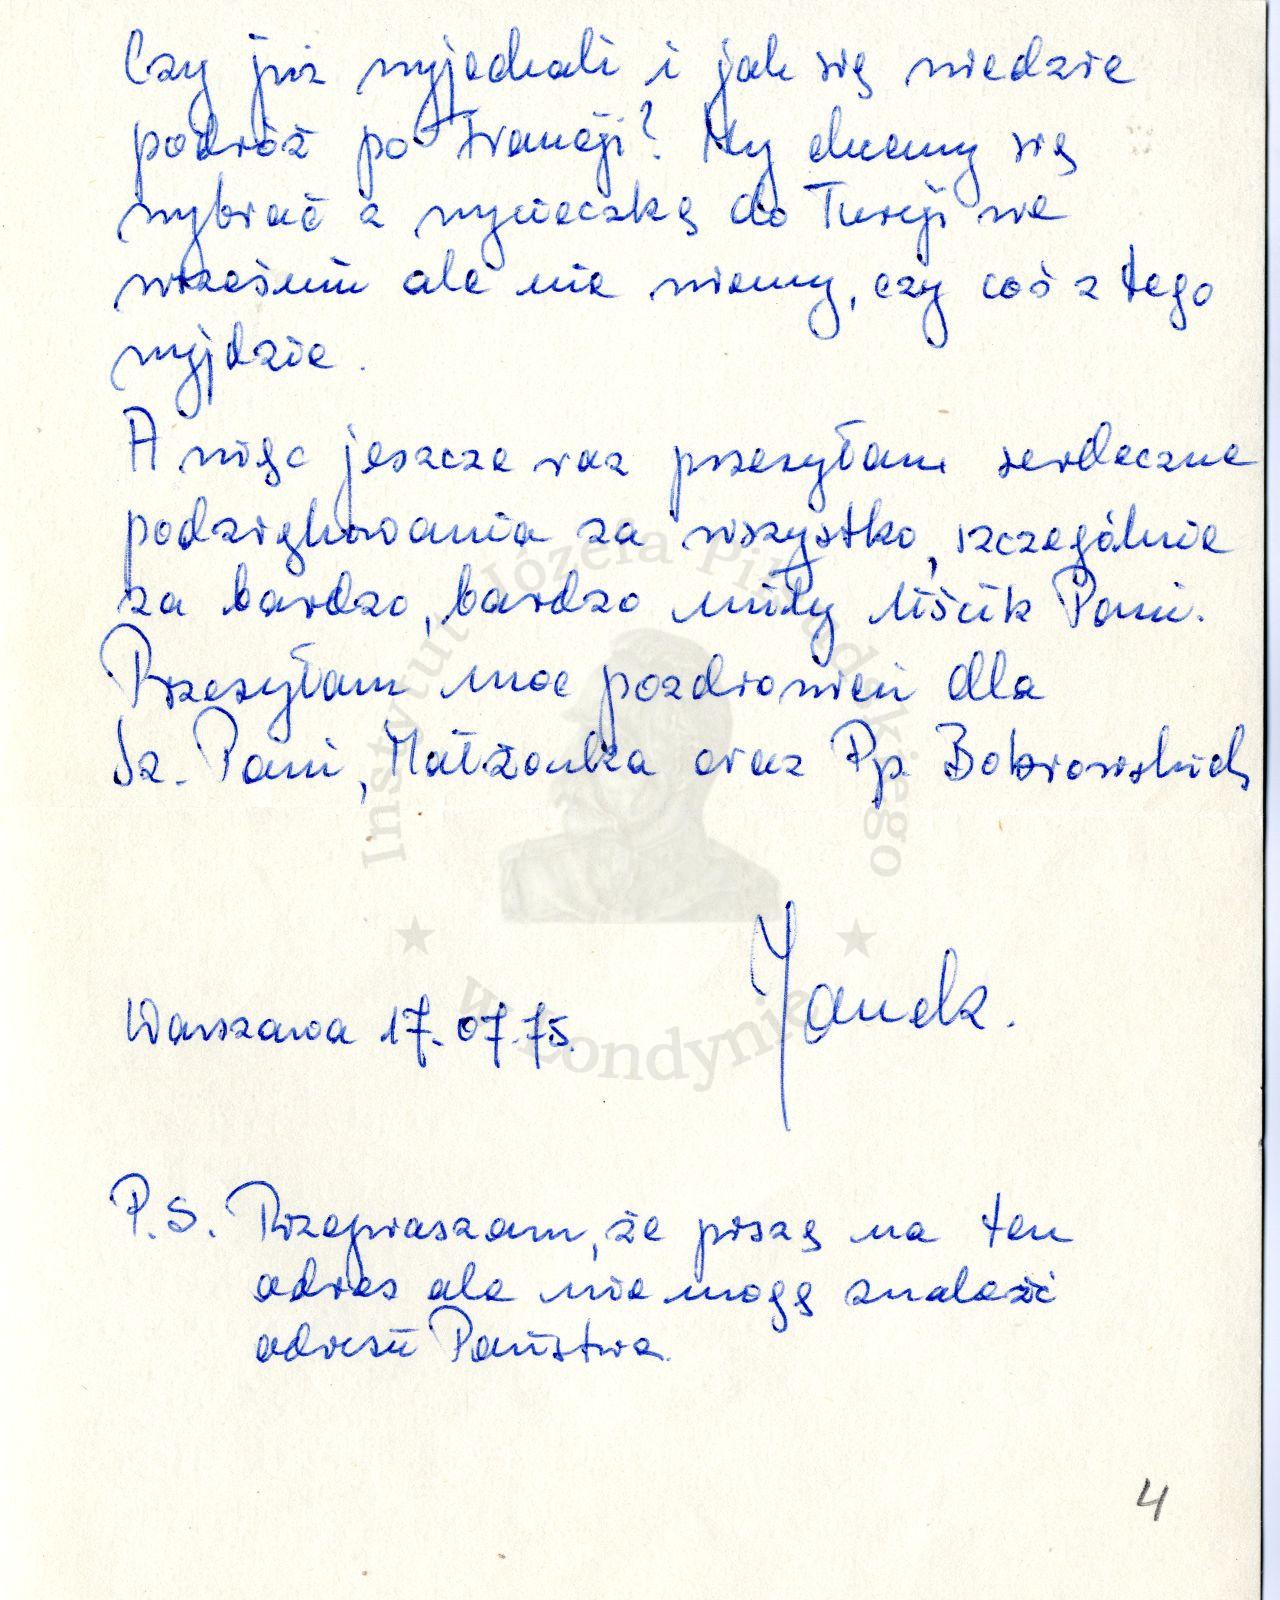 Czy już wyjechali i jak się wiedzie
podróż po Francji? My chcemy się
wybrać z wycieczką do Turcji we
wrześniu ale nie wiemy, czy coś z tego
wyjdzie.
A więc jeszcze raz przesyłam serdeczne
podziękowania za wszystko, szczególnie
za bardzo, bardzo miły liścik Pani.
Przesyłam moc pozdrowień dla
Sz. Pani, Małżonka oraz Pp. Bobrowskich
Janek.
Warszawa 17.07.75.
P.S. Przepraszam, że piszę na ten
adres ale nie mogę znaleźć
adresu Państwa.
4
Instytut Józefa Piłsudskiego
w Londynie